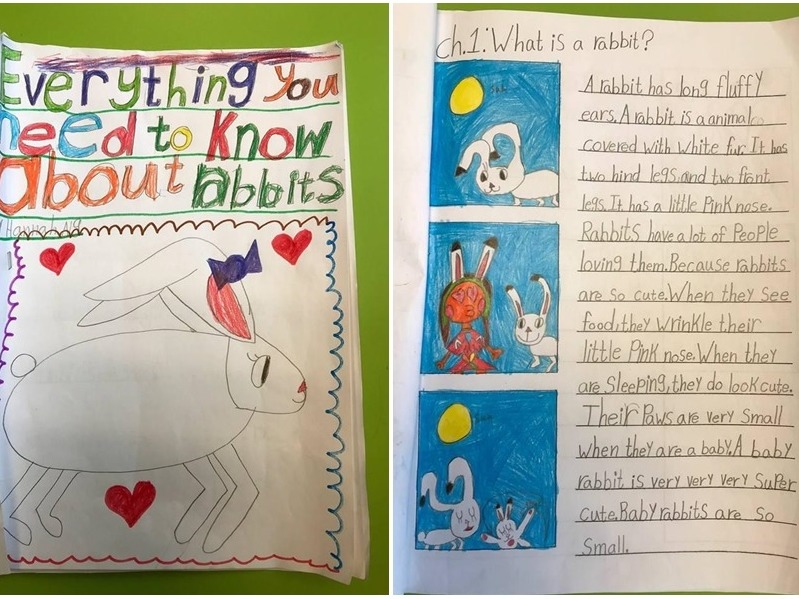 Everything You
need to Know
about Rabbits
ch.1: What is a rabbit?
A rabbit has long fluffy
ears. A rabbit is a animal
covered with white fur. It has
two hind legs, and two front
legs. It has a little Pink nose.
Rabbits have a lot of People
loving them. Because rabbits
are so cute. When they see
food, they wrinkle their
little Pink nose. When they
are sleeping, they do look cute.
Their Paws are very small
when they are a baby. A baby
rabbit is very very very super
cute. Baby rabbits are so
small.